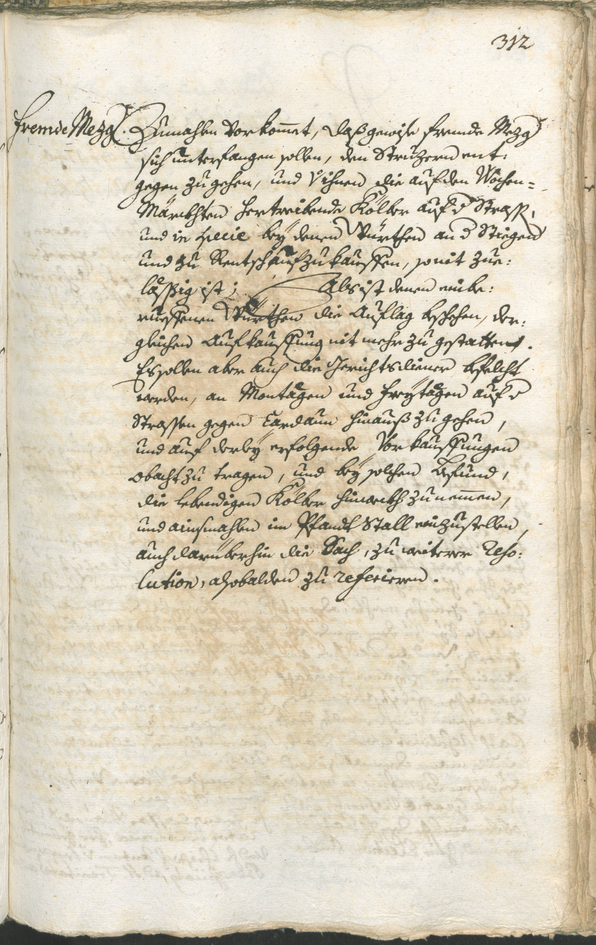 312
Fremde Mezger. Zumahlen vorkommet, daß gewise fremde Mezger
sich unterfangen sollen, den Struzern ent:
gegen zu gehen, und Ihnen die auf den Wochen=
Märckhten hertreibende Kölber auf der Strass,
und in specie bey denen Würthen an d Stiegen
und zu Rentsch aufzukauffen, so nit zue:
lässig ist; Als ist denen einbe:
rueffenen Würthen die Auflag beschehen, der:
gleichen Aufkauffung nit mehr zu gestatten.
Es sollen aber auch die Gerichtsdiener befelcht
werden, an Montägen und Freytägen auf d
Strassen gegen Cardaun hinauß zu gehen,
und auf derley erfolgende Vorkauffungen
obacht zu tragen, und bey solchen Befund,
die lebendigen Kölber hinweckh zunemmen,
und ainsmahlen im Pfandt Stall einzustellen,
auch darüberhin die Sach, zu weiterer Reso:
lution, alsobalden zu referieren.